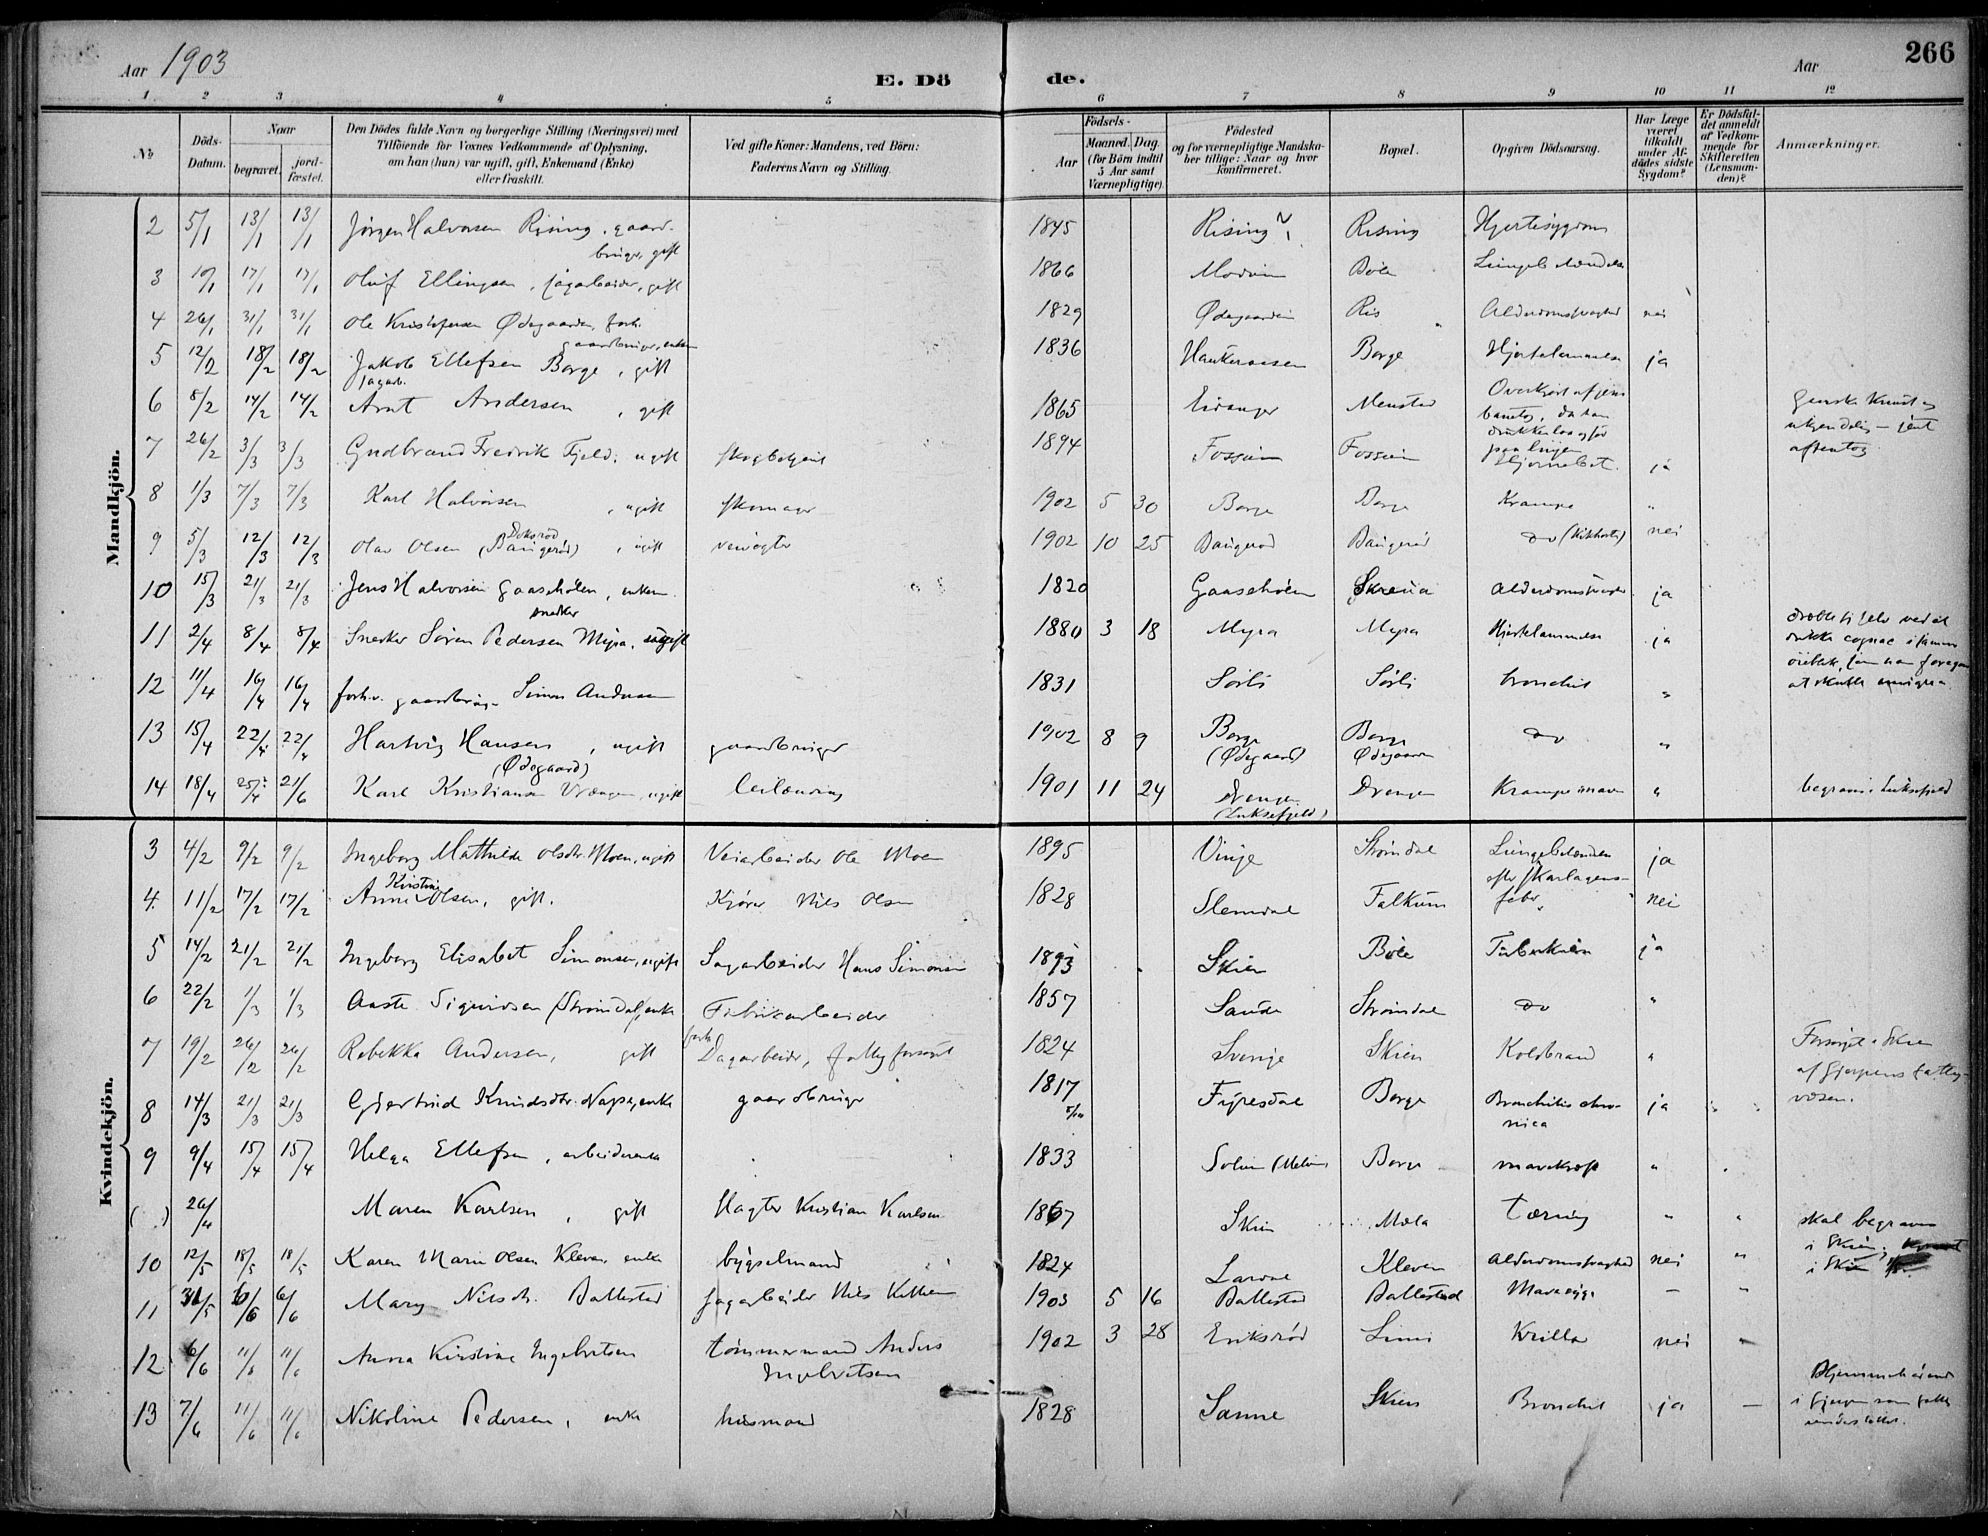 266
Aar 1903
E. Döde.
Aar
1 2 3 4 5 6 7 8 9 10 11 12
No.
Döds-Datum.
Naar
begravet.
jord-fæstet.
Den Dödes fulde Navn og borgerlige Stilling (Næringsvei) med
Tilföiende for Voxnes Vedkommende af Oplysning,
om han (hun) var ugift, gift, Enkemand (Enke)
eller fraskilt.
Ved gifte Koner: Mandens, ved Börn:
Faderens Navn og Stilling.
Födsels-
Aar
Maaned. Dag.
(for Börn indtil
5 Aar samt
Værnepligtige).
Födested
og for værnepligtige Mandska-
ber tillige: Naar og hvor
konfirmeret.
Bopæl.
Opgiven Dödsaarsag.
Har Læge
været
tilkaldt
under Af-
dödes sidste
Sygdom?
Er Dödsfal-
det anmeldt
af Vedkom-
mende for
Skifteretten
(Lensman-
den)?
Anmærkninger.
Mandkjön.
2 5/1 13/1 13/1 Jörgen Halvorsen Rising, gaard-bruger, gift 1845 Rising Rising Hjertesygdom
3 10/1 17/1 17/1 Oluf Ellingsen, sagarbeider, gift 1866 Böle
4 26/1 31/1 31/1 Ole Kristofersen Ødegaarden, forh. gaardbruger, enkem 1829 Ødegaarden Ris Alderdomssvaghed nei
5 12/2 18/2 18/2 Jakob Ellefsen Borge, gift 1836 Borge Hjertelammelse ja
6 8/2 14/2 14/2 sagarb. Arnt Andersen, gift 1865 Eidanger Menstad Overkjørt af jern
banetog, da han
drukken laa og sov
paa linjen
7 26/2 3/3 3/3 Gudbrand Fredrik Fjeld, ugift skogbetjent 1894 Fossum Fossum Hjernebet. ja
8 1/3 7/3 7/3 Karl Halvorsen, ugift skomager 1902 5 30 Borge Borge Krampe "
9 5/3 12/3 12/3 Olav Olsen (Baugeröd), ugift veivogter 1902 10 25 Baugeröd Baugeröd Do (Kikhoste) nei
10 15/3 21/3 21/3 Jens Halvorsen Gaaseholen, enkem 1820 Gaaseholen Alderdomssvaghed ja
11 2/4 8/4 8/4 Snedker Sören Pedersen Myra, ugift 1880 3 18 Myra Myra Hjertelammelse ja
12 11/4 16/4 16/4 forhv. gaardbrug. Simon Andersen 1831 Sörli Sörli bronchit "
13 15/4 22/4 22/4 Hartvig Hansen, ugift (Ødegaard) gaardbruger 1902 8 9 Borge (Ødegaard) Borge Ødegaarden Do "
14 18/4 25/4 21/6 Karl Kristiansen, ugift leilænding 1901 11 24 (Luksefjeld) "
begravet i Luksefjeld
Kvindekjön.
3 4/2 9/2 9/2 Ingeborg Mathilde Olsdtr. Moen, ugift Veiarbeider Ole Moen 1895 Vinje Strömdal Lungebetændelse
efter Skarlagens-
feber ja
4 11/2 17/2 17/2 Anne Kirstine Olsen, gift. Kjörer Nils Olsen 1828 Slemdal Falkum " nei
5 14/2 21/2 21/2 Ingeborg Elisabet Simonsen, ugift Sagarbeider Hans Simonsen 1893 Skien Böle Tuberkulose ja
6 22/2 1/3 1/3 Aaste Sigurdsen (Strömdal), enke Fabrikarbeider 1857 Saude Strömdal Do "
7 19/2 26/2 26/2 Rebekka Andersen, gift forh. Dagarbeider, fattigforsørget 1824 Sverige Skien Koldbrand "
Forsørget i Skien
af Gjerpens fattig-
væsen.
8 14/3 21/3 21/3 Gjertrud Knudsdtr. Napa, enke gaardbruger 1817 Fyresdal Borge Bronchitis chro-
nica ja
9 9/4 15/4 15/4 Helga Ellefsen, arbeiderenke 1833 Solum Borge mavekræft "
( ) 26/4 Maren Karlsen, gift Slagter Kristian Karlsen 1867 Skien Mæla Tæring " "
skal begraves
i Skien.
10 12/5 18/5 18/5 Karen Marie Olsen Kleven, enke bygselmand 1824 Lardal Kleven Alderdomssvaghed nei "
11 31/5 6/6 6/6 Mary Nilsdtr. Ballestad sagarbeider Nils 1903 5 16 Ballestad Ballestad Mavesyge — "
12 6/6 11/6 11/6 Anna Kirstine Ingebretsen tömmermand Anders
Ingebretsen 1902 3 28 Eriksröd Limi Krilla nei "
13 7/6 11/6 11/6 Nikoline Pedersen, enke husmand 1828 Sanne Skien Bronchit ja —
Hjemmehörende
i Gjerpen som fattig
understöttet.